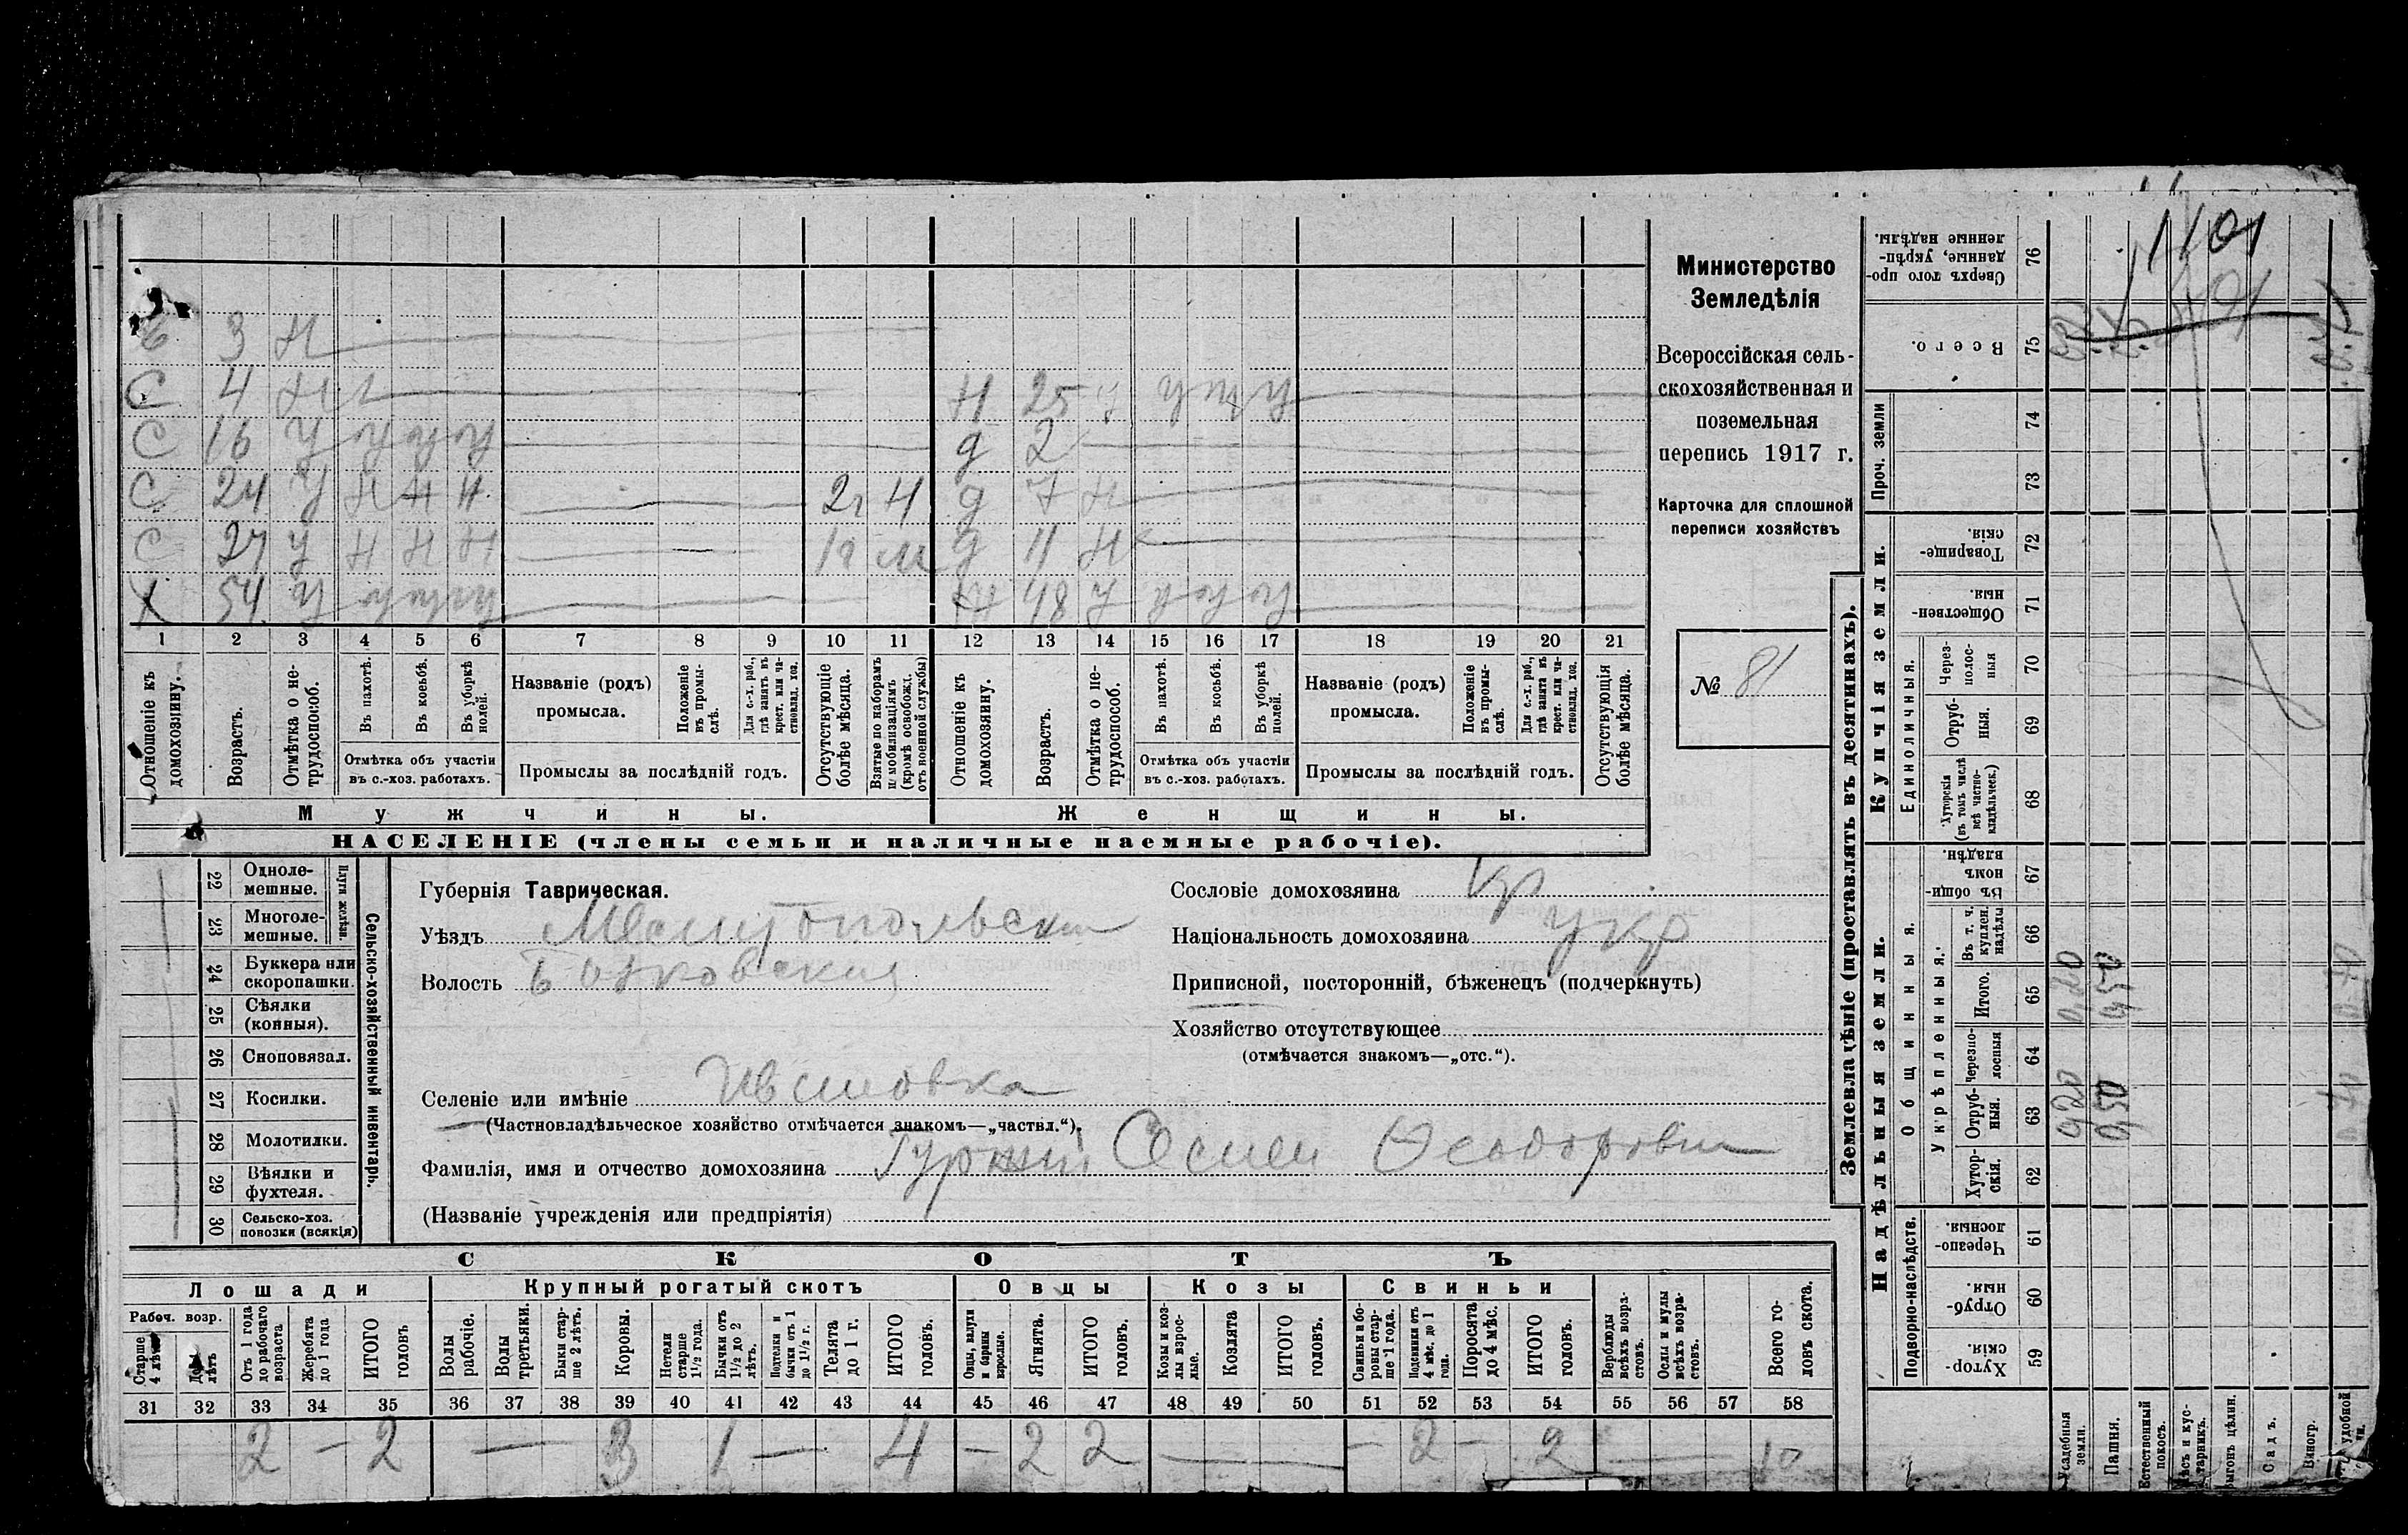 1101
Министерство
Земледѣлія
Всероссійская сель-
скохозяйственная и
поземельная
перепись 1917 г.
Карточка для сплошной
переписи хозяйствъ
№ 81
3 Н
С 4 Н
Н 25 У У
С 16 У У У У
д 2
С 24 У Н Н Н 2г Н
д 7 Н
С 27 У Н Н Н 1г
д 11 Н
Х 54 У
48 У
1 2 3 4 5 6 7 8 9 10 11 12 13 14 15 16 17 18 19 20 21
Отношеніе къ домохозяину.
Возрастъ.
Отмѣтка о не-трудоспособ.
Въ пахотѣ.
Въ косьбѣ.
Въ уборкѣ полей.
Отмѣтка объ участіи въ с.-хоз. работахъ.
Названіе (родъ) промысла.
Положеніе въ промы-слѣ.
Для с.-х. раб., гдѣ занятъ въ крест. или ча-стновлад. хоз.
Промыслы за послѣдній годъ.
Отсутствующіе болѣе мѣсяца.
Взятые по наборамъ и мобилизаціямъ (кромѣ освобожд. отъ военной службы)
Отношеніе къ домохозяину.
Возрастъ.
Отмѣтка о не-трудоспособ.
Въ пахотѣ.
Въ косьбѣ.
Въ уборкѣ полей.
Отмѣтка объ участіи въ с.-хоз. работахъ.
Названіе (родъ) промысла.
Положеніе въ промы-слѣ.
Для с.-х. раб., гдѣ занята въ крест. или ча-стновлад. хоз.
Промыслы за послѣдній годъ.
Отсутствующія болѣе мѣсяца.
Мужчины.
Женщины.
НАСЕЛЕНІЕ (члены семьи и наличные наемные рабочіе).
Сельско-хозяйственный инвентарь.
Плуги желѣзн.
22 Одноле-мешные.
23 Многоле-мешные.
24 Буккера или скоропашки.
25 Сѣялки (конныя).
26 Сноповязал.
27 Косилки.
28 Молотилки.
29 Вѣялки и фухтеля.
30 Сельско-хоз. повозки (всякія)
Губернія Таврическая.
Уѣздъ Мелитопольски
Волость
Селеніе или имѣніе
(Частновладѣльческое хозяйство отмѣчается знакомъ—„частвл.“).
Фамилія, имя и отчество домохозяина
(Названіе учрежденія или предпріятія)
Сословіе домохозяина кр
Національность домохозяина укр
Приписной, посторонній, бѣженецъ (подчеркнуть)
Хозяйство отсутствующее
(отмѣчается знакомъ—„отс.“).
СКОТЪ
Лошади
Крупный рогатый скотъ
Овцы
Козы
Свиньи
Рабоч. возр.
Старше 4 лѣтъ
До 4 лѣтъ
Отъ 1 года до рабочаго возраста
Жеребята до 1 года
ИТОГО головъ
Волы рабочіе.
Волы третьяки.
Быки стар-ше 2 лѣтъ.
Коровы.
Нетели старше 1½ года.
Бычки отъ 1½ до 2 лѣтъ.
Подтелки и бычки отъ 1 до 1½ г.
Телята до 1 г.
ИТОГО головъ.
Овцы, валухи и бараны взрослые.
Ягнята.
ИТОГО головъ.
Козы и коз-лы взрос-лые.
Козлята
ИТОГО головъ.
Свиньи и бо-ровы стар-ше 1 года.
Подсвинки отъ 4 мѣс. до 1 года.
Поросята до 4 мѣс.
ИТОГО головъ.
Верблюды всѣхъ возра-стовъ.
Ослы и мулы всѣхъ возра-стовъ.
Всего го-ловъ скота.
31 32 33 34 35 36 37 38 39 40 41 42 43 44 45 46 47 48 49 50 51 52 53 54 55 56 57 58
2 — 2 — 3 1 — 4 — 2 2 — — 2 — 2 — 10
Землевладѣніе (проставлять въ десятинахъ).
Купчія земли.
Надѣльныя земли.
Сверхъ того про-данные, укрѣп-ленные надѣлы. 76
Всего. 75
Проч. земли
74
73
Товарище-скія. 72
Обществен-ныя. 71
Единоличныя.
Через-полос-ныя 70
Отруб-ныя. 69
Хуторскія (въ томъ числѣ всѣ частно-владѣльческ.) 68
Общинныя.
Въ общин-номъ владѣн. 67
Укрѣпленныя.
Въ т. ч. куплен. надѣлы 66
Итого. 65
Черезпо-лосныя 64
Отруб-ныя. 63
Хутор-скія. 62
Подворно-наслѣдств.
Черезпо-лосныя. 61
Отруб-ныя. 60
Хутор-скія. 59
Усадебныя земли.
Пашня.
Естественный покосъ.
Лѣсъ и кус-тарникъ.
Выгонъ цѣлин.
Садъ.
Виногр.
удобной